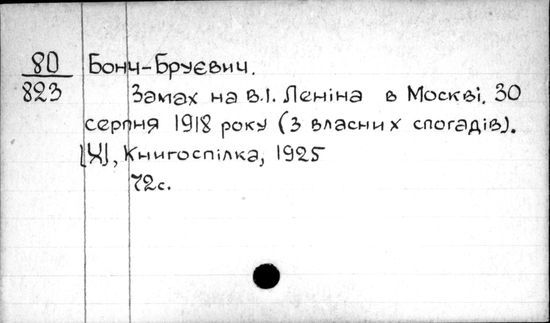 80
823
Бонч-Бруєвич.
Замах на В.І. Леніна в Москві. 30
серпня 1918 року (З власних спогадів).
[Х], Книгоспілка, 1925
72с.